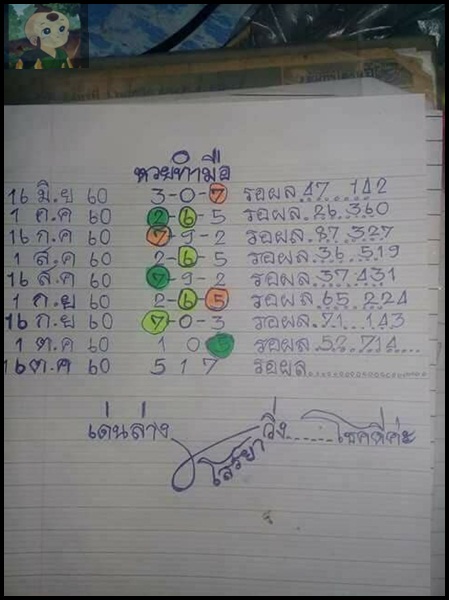 หวยทำมือ
16 มิ.ย 60 3-0-7 รอผล.47...142
1 ค.ค 60 2-6-5 รอผล.26.360
16 ก.ค 60 7-9-2 รอผล.87.327
1 ส.ค 60 2-6-5 รอผล.36.519
16 ส.ค 60 7-9-2 รอผล.37.431
1 ก.ย 60 2-6-5 รอผล.65.224
16 ก.ย 60 7-0-3 รอผล.71...143
1 ต.ค 60 1 0 5 รอผล.53.714...
16 ต.ค 60 5 1 7 รอผล..............
เด่นล่าง วิ่ง...... โชคดีค่ะ